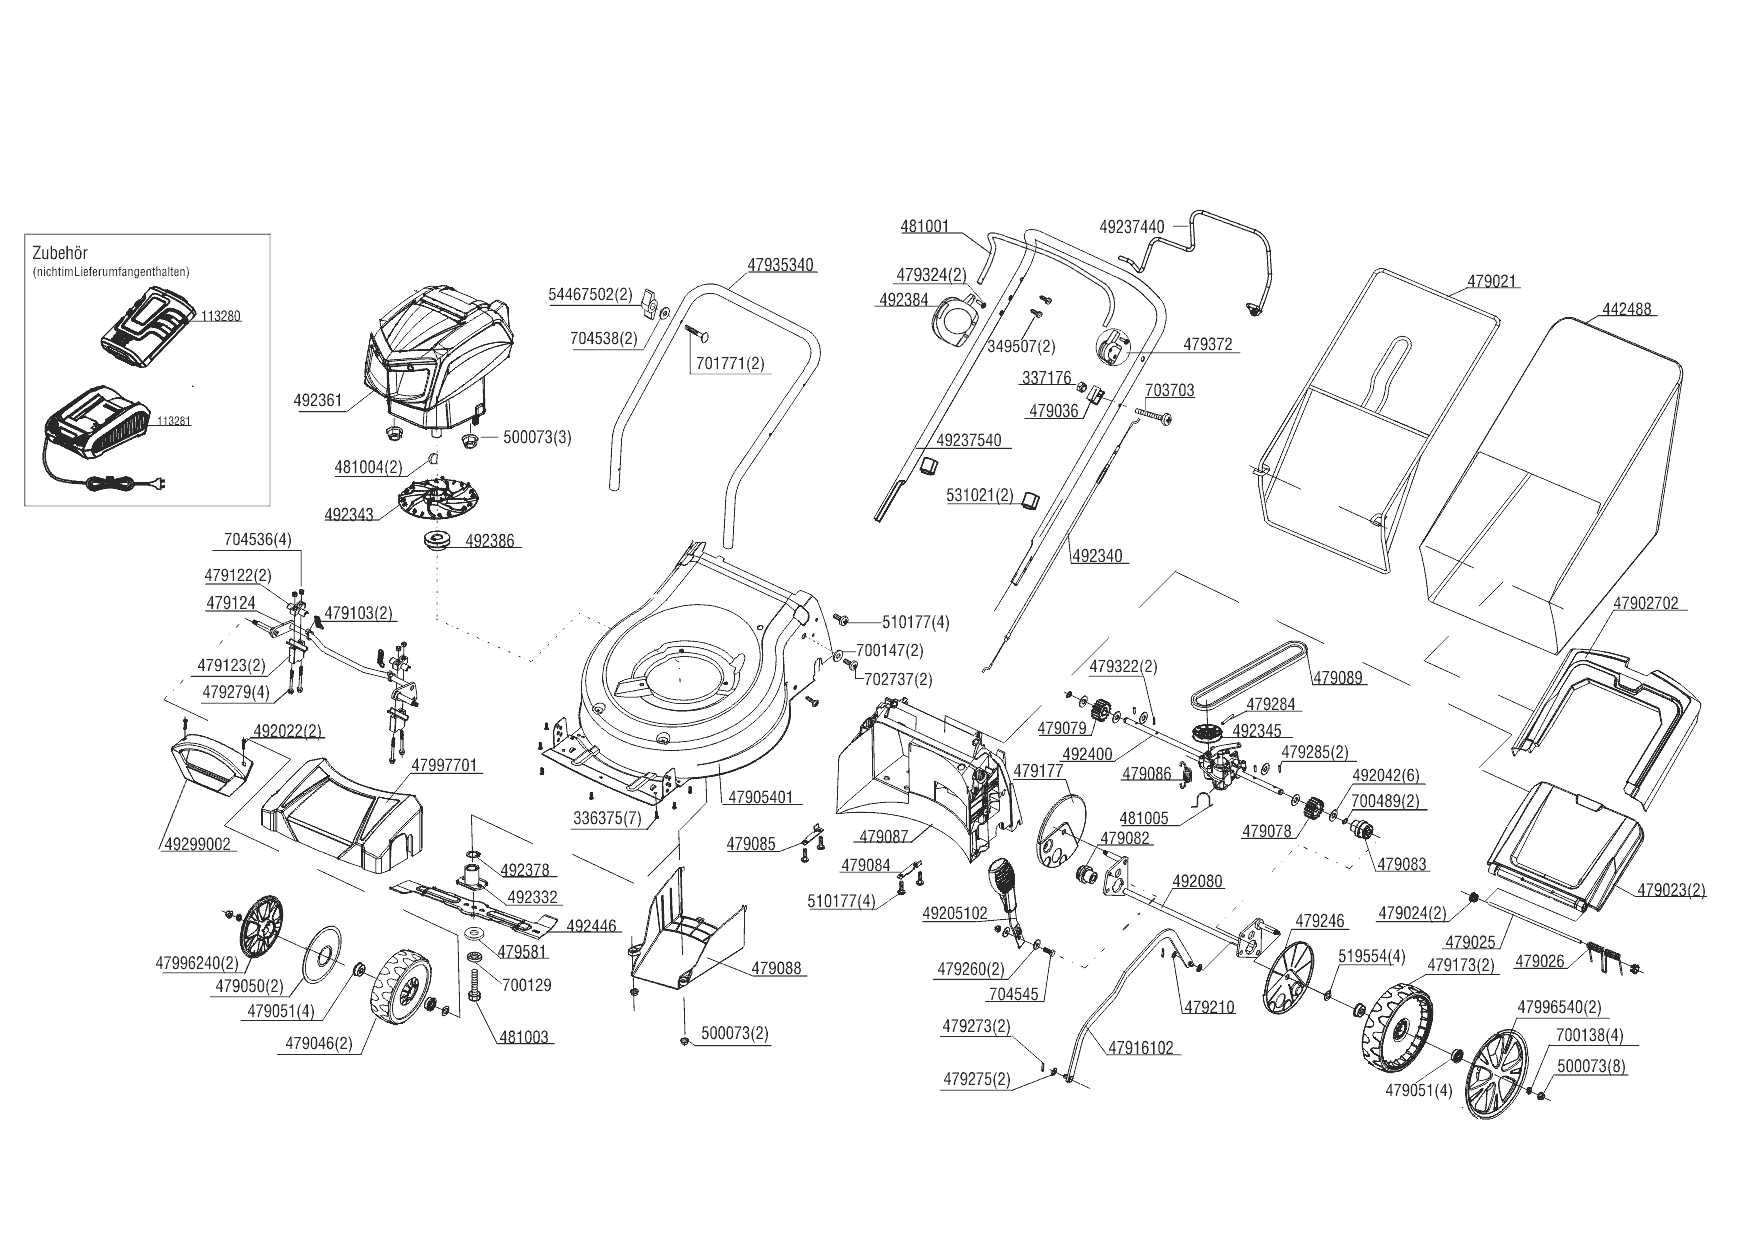 Zubehör
(nichtimLieferumfangenthalten)
113280
113281
492361
500073(3)
481004(2)
492343
492386
47935340
54467502(2)
704538(2)
701771(2)
481001
479324(2)
492384
49237440
349507(2)
479372
337176
479036
703703
49237540
531021(2)
492340
479021
442488
47902702
704536(4)
479122(2)
479124
479103(2)
479123(2)
479279(4)
492022(2)
47997701
49299002
510177(4)
700147(2)
702737(2)
47905401
336375(7)
479085
479084
510177(4)
479087
479322(2)
479079
492400
479086
481005
479089
479284
492345
479285(2)
492042(6)
700489(2)
479078
479083
479177
479082
492080
49205102
479260(2)
704545
479246
519554(4)
479173(2)
479210
47916102
479273(2)
479275(2)
479023(2)
479024(2)
479025
479026
47996540(2)
700138(4)
500073(8)
479051(4)
492378
492332
492446
479581
700129
481003
479088
500073(2)
47996240(2)
479050(2)
479051(4)
479046(2)